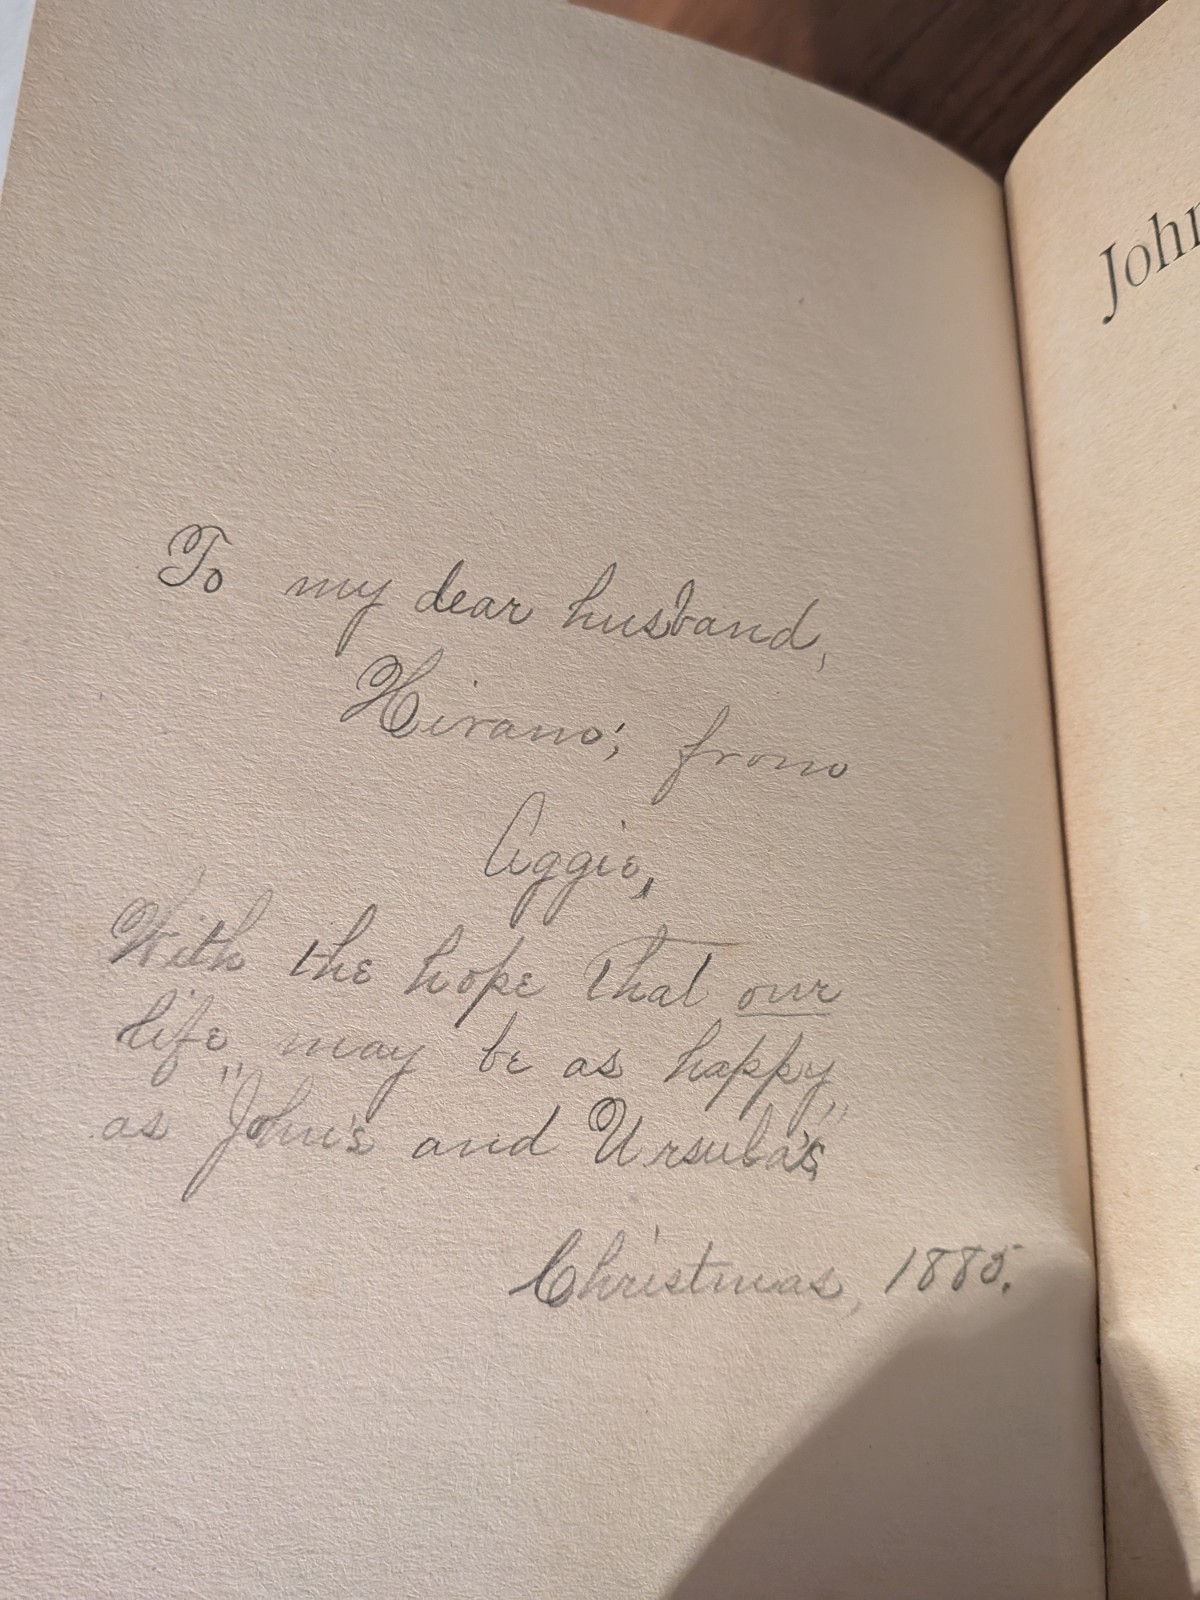 To my dear husband,
Hiram; from
Aggie,
With the hope that our
life may be as happy
as "John's and Ursula's"
Christmas, 1885.
John